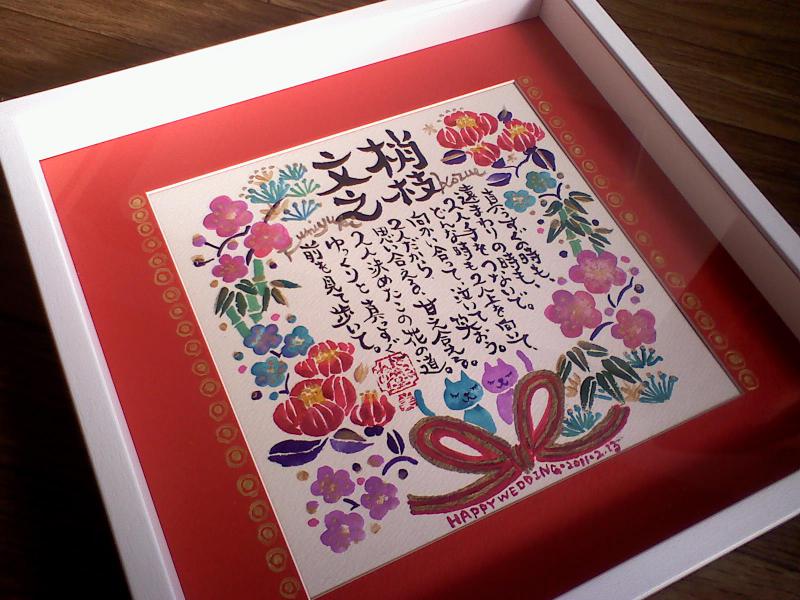 梢枝
Kozue
文之
Fumiyuki
真っすぐの時も、
遠まわりの時も
2人手をつなぎ、上を向いて、
どんな時も2人で。
向かい合って、泣いて笑おう。
2人だから
思い合える。甘え合える。
2人決めたこの花の道。
ゆっくりと真っすぐ
前を見て歩いて。
HAPPY WEDDING・2011・2.13